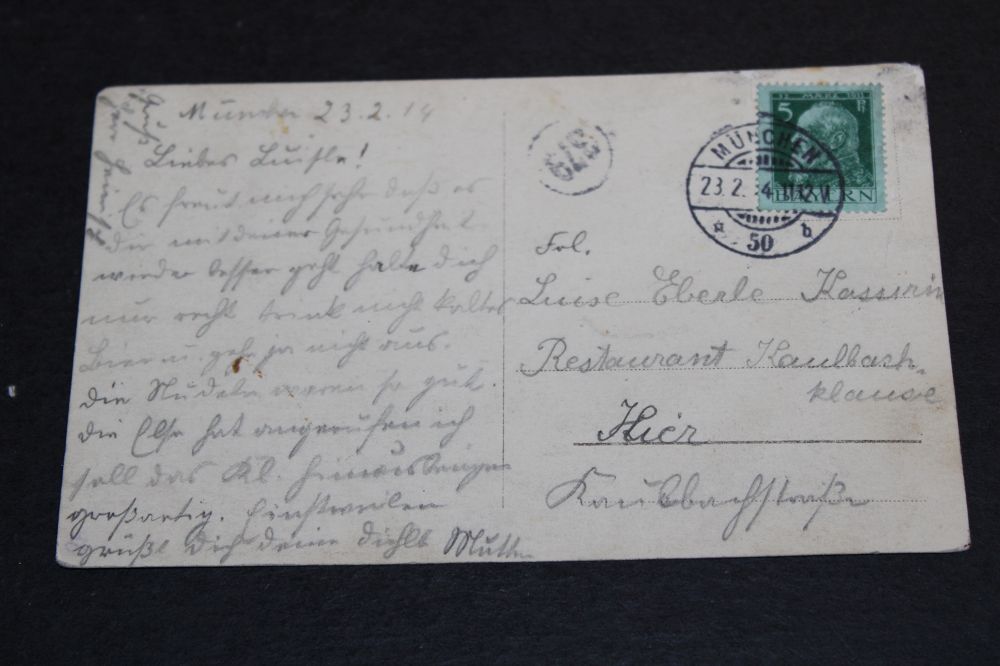 München 23.2.14
Liebes Luisle!
Es freut mich sehr daß es
dir mit deiner Gesundheit
wieder besser geht halte dich
nur recht trink nicht kaltes
Bier u. geh ja nicht aus.
die Nudeln waren so gut.
die Else hat angerufen ich
soll das Kl. hinausbringen
großartig. Einstweilen
grüßt dich deine Mutter
Gruß
Herr
379
12 MÄRZ 1911
5 Pf
BAYERN
MÜNCHEN
23.2.14 11-12V.
50 b
Frl.
Luise Eberle Kassierin
Restaurant Kaulbach-
klause
Hier
Kaulbachstraße